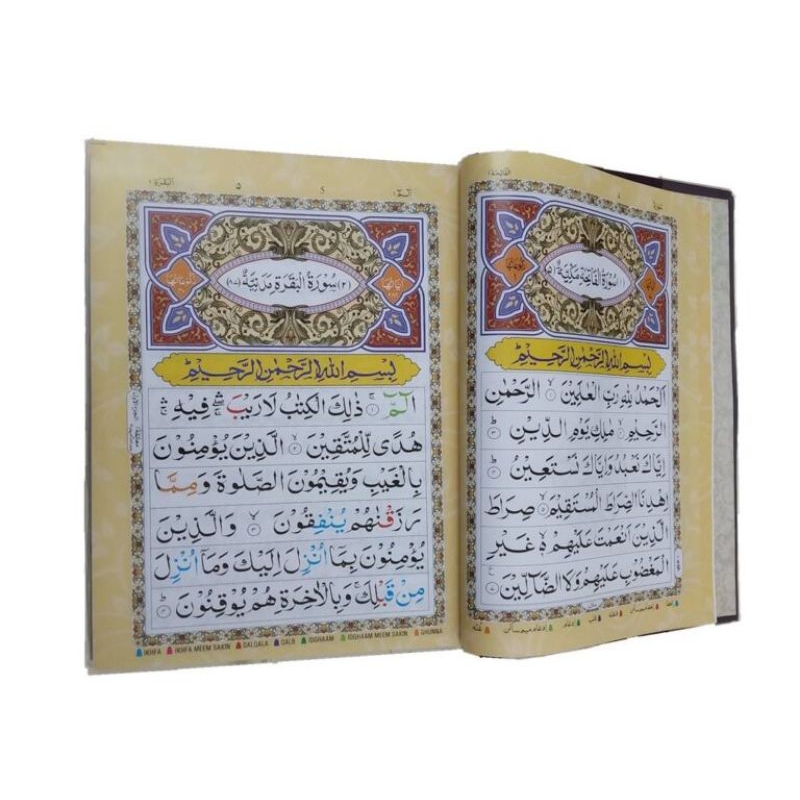 سُوْرَةُ الْفَاتِحَةِ مَكِّيَّةٌ
بِسْمِ اللهِ الرَّحْمٰنِ الرَّحِيْمِ
اَلْحَمْدُ لِلّٰهِ رَبِّ الْعٰلَمِيْنَ ۙ۝ الرَّحْمٰنِ
الرَّحِيْمِ ۙ۝ مٰلِكِ يَوْمِ الدِّيْنِ ؕ۝
اِيَّاكَ نَعْبُدُ وَاِيَّاكَ نَسْتَعِيْنُ ؕ۝
اِهْدِنَا الصِّرَاطَ الْمُسْتَقِيْمَ ۙ۝ صِرَاطَ
الَّذِيْنَ اَنْعَمْتَ عَلَيْهِمْ ۙ۬ غَيْرِ
الْمَغْضُوْبِ عَلَيْهِمْ وَلَا الضَّآلِّيْنَ ۝
البقرة ٢
٥
الٓمّٓ
(٢) سُوْرَةُ الْبَقَرَةِ مَدَنِيَّةٌ (٨٧)
بِسْمِ اللهِ الرَّحْمٰنِ الرَّحِيْمِ
الٓمّٓ ۚ۝ ذٰلِكَ الْكِتٰبُ لَا رَيْبَ ۛۖ فِيْهِ ۛۚ
هُدًى لِّلْمُتَّقِيْنَ ۙ۝ الَّذِيْنَ يُؤْمِنُوْنَ
بِالْغَيْبِ وَيُقِيْمُوْنَ الصَّلٰوةَ وَمِمَّا
رَزَقْنٰهُمْ يُنْفِقُوْنَ ۙ۝ وَالَّذِيْنَ
يُؤْمِنُوْنَ بِمَاۤ اُنْزِلَ اِلَيْكَ وَمَاۤ اُنْزِلَ
مِنْ قَبْلِكَ ۚ وَبِالْاٰخِرَةِ هُمْ يُوْقِنُوْنَ ؕ۝
IKHFA IKHFA MEEM SAKIN QALQALA QALB IDGHAAM IDGHAAM MEEM SAKIN GHUNNA